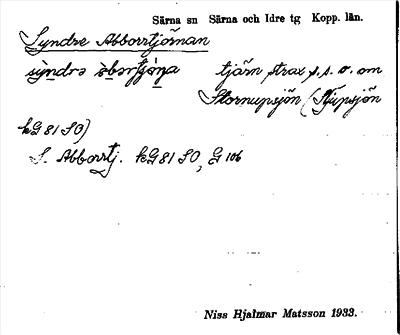 Särna sn Särna och Idre tg Kopp. län.
Syndre Abborrtjörnan
syndrə åbərtjö́ṇa tjärn strax s.s.o. om
Stornupsjön (Djupsjön
kG 81 SO)
S. Abborrtj. kG 81 SO, G 106
Niss Hjalmar Matsson 1933.